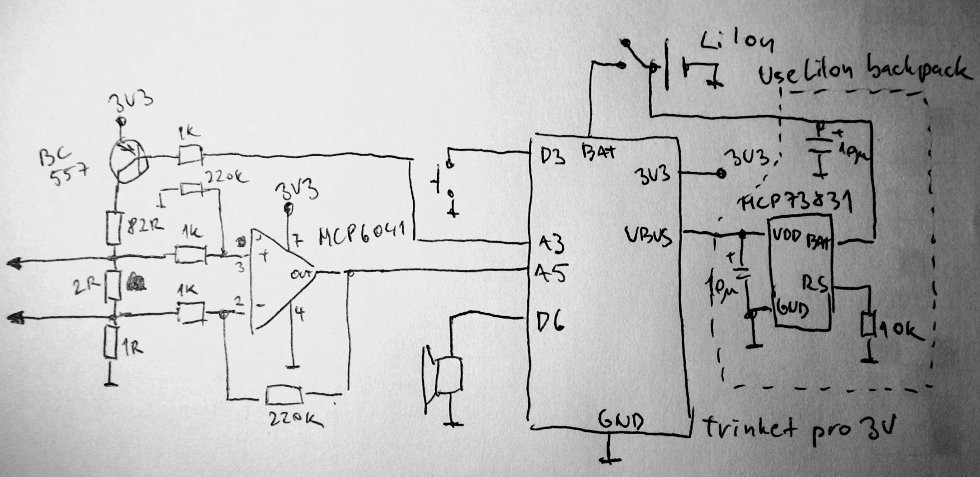 LiIon
Use LiIon backpack
3V3
BC
557
1K
220K
3V3
82R
1K
MCP6041
7
3
+
OUT
2R
1K
2
-
4
1R
220K
D3
BAT
3V3
3V3
VBUS
A3
A5
D6
GND
+
10µ
MCP73831
VDD
BAT
RS
GND
+
10µ
10K
trinket pro 3V